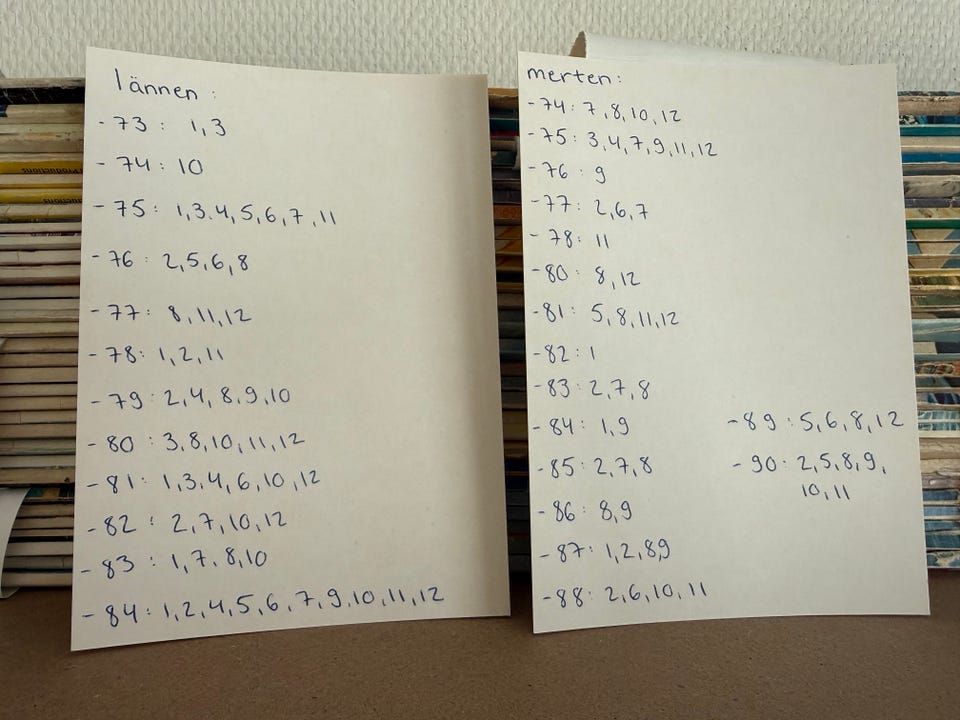 lännen :
-73 : 1,3
-74 : 10
-75 : 1,3.4,5,6,7,11
-76 : 2,5,6,8
-77 : 8,11,12
-78 : 1,2,11
-79 : 2,4,8,9,10
-80 : 3,8,10,11,12
-81 : 1,3,4,6,10,12
-82 : 2,7,10,12
-83 : 1,7.8,10
-84 : 1,2,4,5,6,7,9,10,11,12
merten :
-74 : 7,8,10,12
-75 : 3,4,7,9,11,12
-76 : 9
-77 : 2,6,7
-78 : 11
-80 : 8,12
-81 : 5,8,11,12
-82 : 1
-83 : 2,7,8
-84 : 1,9
-85 : 2,7,8
-86 : 8,9
-87 : 1,2,8,9
-88 : 2,6,10,11
-89 : 5,6,8,12
-90 : 2,5,8,9,
10,11